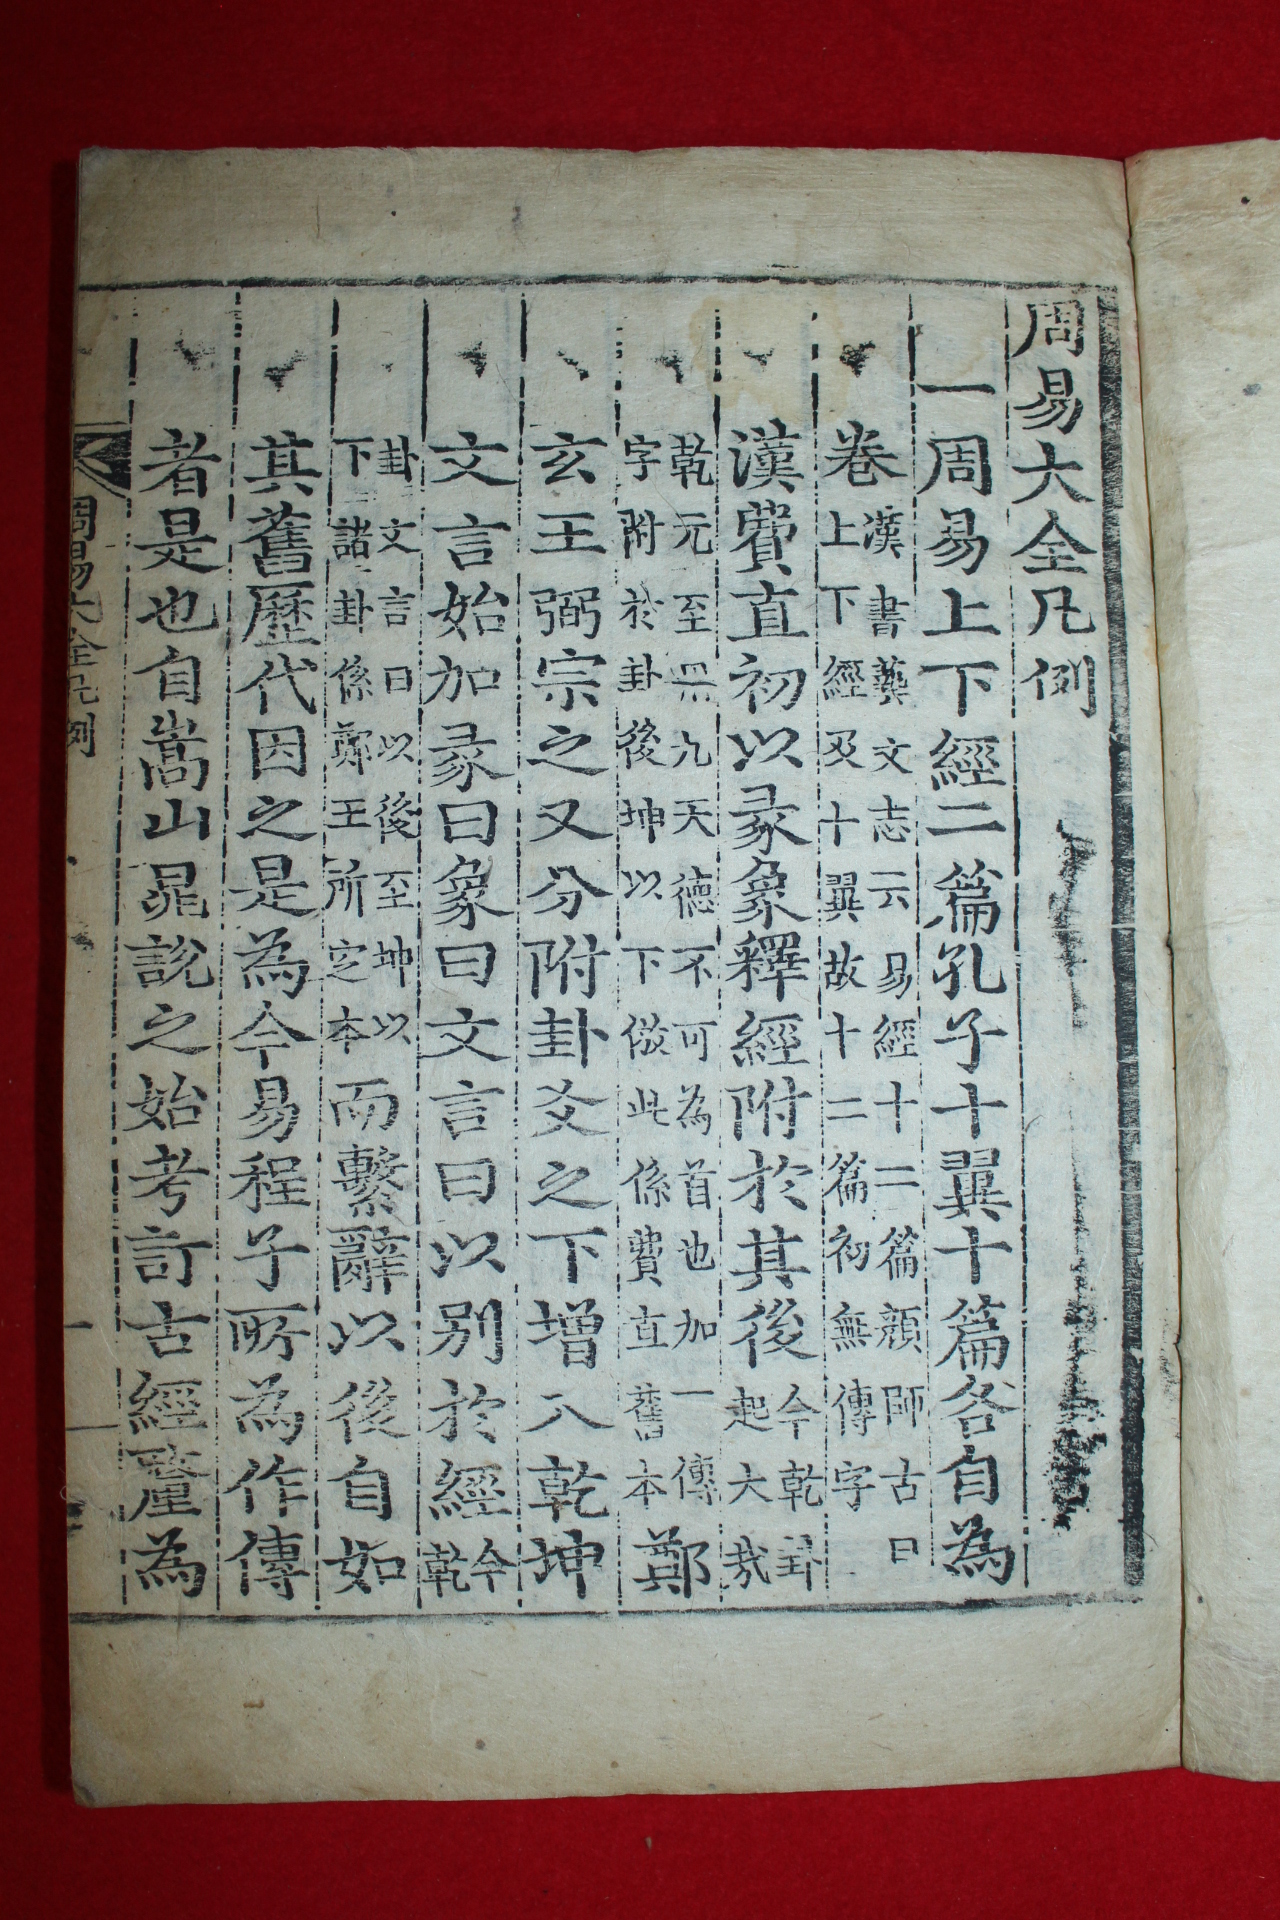 周易大全凡例
一周易上下經二篇孔子十翼十篇各自為
卷漢書藝文志云易經十二篇顔師古曰上下經及十翼故十二篇初無傳字
漢費直初以彖象釋經附於其後今乾卦起大哉
乾元至無九天德不可為首也加一傳字附於卦後坤以下倣此係費直舊本鄭
玄王弼宗之又分附卦爻之下增入乾坤
文言始加彖曰象曰文言曰以別於經今乾
卦文言曰以後至坤以下諸卦係鄭王所定本而繫辭以後自如
其舊歷代因之是為今易程子所為作傳
者是也自嵩山晁說之始考訂古經釐為
周易大全凡例 一